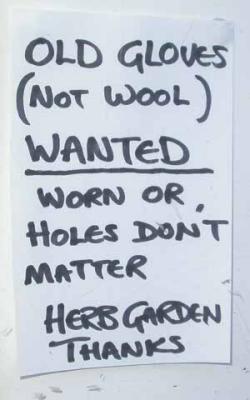 OLD GLOVES
(NOT WOOL)
WANTED
WORN OR
HOLES DON'T
MATTER
HERB GARDEN
THANKS